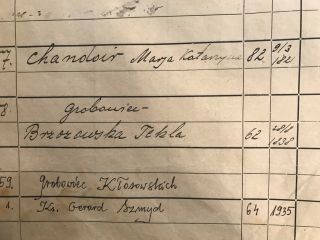 7. Chandoir Marja Katarzyna 82 9/3 182
8. grobowiec
Brzozowska Tekla 62 1838
59. grobowiec Kłosowskich
1. Ks. Gerard Szmyd 64 1935